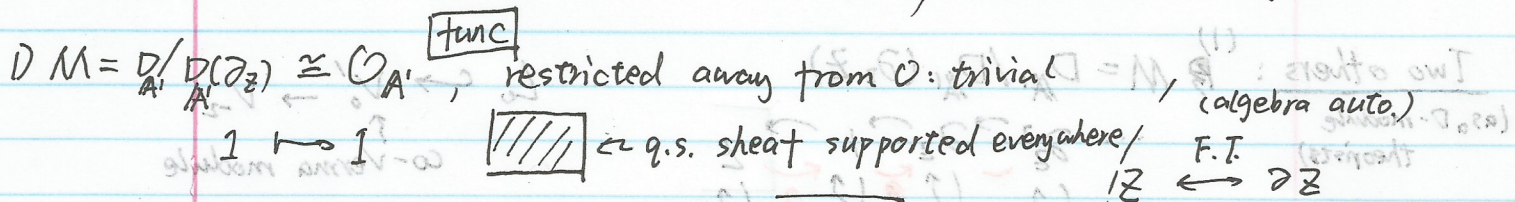 1) M = D_{A¹}/D_{A¹}(∂_z) ≅ O_{A¹}, func restricted away from 0: trivial, (algebra auto.)
1 ↦ 1 ← q.s. sheaf supported everywhere / F.T.
z ↔ ∂z